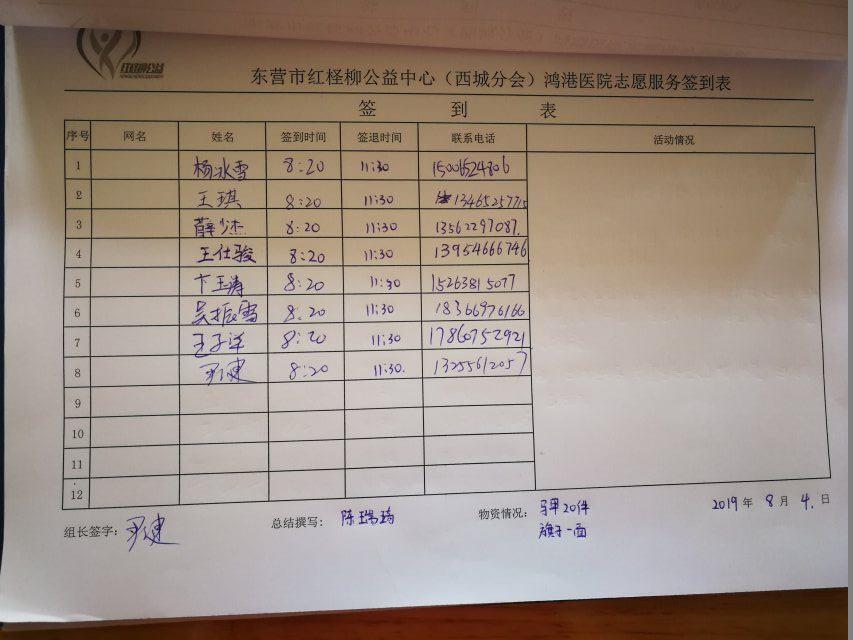 红柽柳公益
东营市红柽柳公益中心（西城分会）鸿港医院志愿服务签到表
签 到 表
序号 网名 姓名 签到时间 签退时间 联系电话 活动情况
1 杨冰雪 8:20 11:30 15006524806
2 王琪 8:20 11:30 13465257715
3 薛少杰 8:20 11:30 13562297087.
4 王仕骏 8:20 11:30 13954666746
5 卞玉涛 8:20 11:30 15263815077
6 吴振雪 8:20 11:30 18366976166
7 王子洋 8:20 11:30 17860752921
8 8:20 11:30. 13255612057
9
10
11
12
组长签字： 总结撰写： 陈瑞琦 物资情况： 马甲20件 2019 年 8 月 4. 日
旗子一面